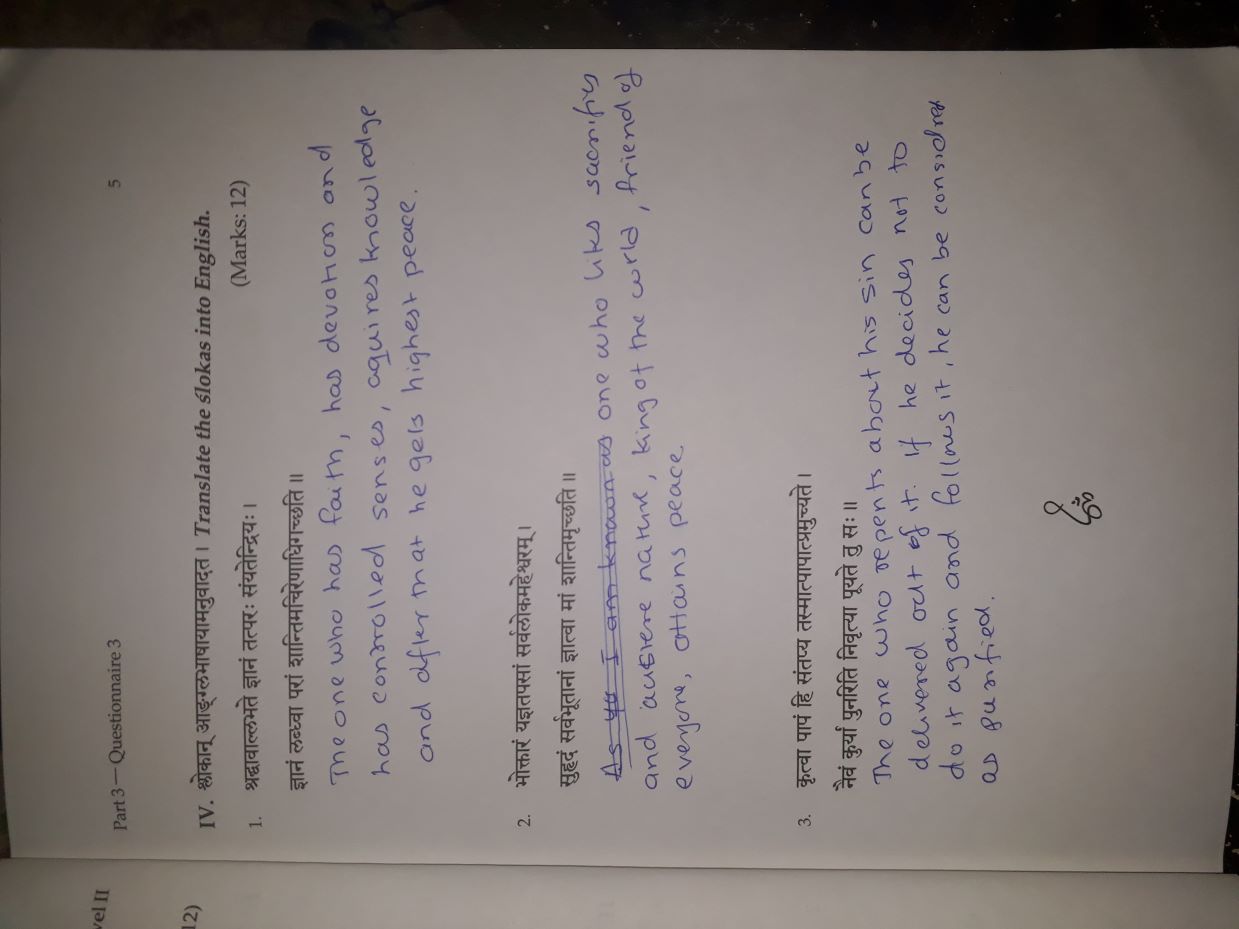 vel II
12)
Part 3 — Questionnaire 3 5
IV. श्लोकान् आङ्ग्लभाषायामनुवादत। Translate the ślokas into English.
(Marks: 12)
1. श्रद्धावाल्लभते ज्ञानं तत्परः संयतेन्द्रियः।
ज्ञानं लब्ध्वा परां शान्तिमचिरेणाधिगच्छति॥
The one who has faith, has devotion and
has controlled senses, aquires knowledge
and after that he gets highest peace.
2. भोक्तारं यज्ञतपसां सर्वलोकमहेश्वरम्।
सुहृदं सर्वभूतानां ज्ञात्वा मां शान्तिमृच्छति॥
As yo I am known as one who liks sacrifies
and austere nature, king of the world, friend of
everyone, attains peace
3. कृत्वा पापं हि संतप्य तस्मात्पापात्प्रमुच्यते।
नैवं कुर्यां पुनरिति निवृत्या पूयते तु सः॥
The one who repents about his sin can be
delivered out of it. If he decides not to
do it again and follows it, he can be considred
as purified.
ॐ